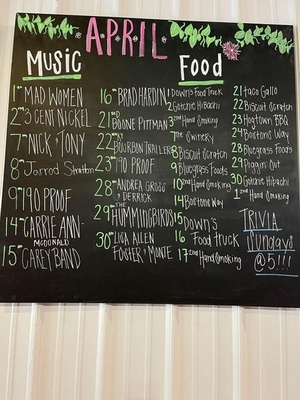 APRIL
Music
1st MAD WOMEN
2nd 5 CENT NICKEL
7th NICK & TONY
8th Jarrod Stratton
9th 190 PROOF
14th CARRIE ANN
MCDONALD
15th CAREY BAND
16th BRAD HARDIN
21st BOONE PITTMAN
22nd KY BOURBON TRAILERS
23rd 190 PROOF
28th ANDREA GROSS
& DERRICK
29th THE HUMMINGBIRDS
30th LISA ALLEN
FOSTER & MONTE
Food
1 Down's Food Truck
2 Gotchie Hibachi
2nd Hand Smoking
7 The Cwinery
8 Biscuit Scratch
9 Bluegrass Foods
10 2nd Hand Smoking
14 Boetons Way
15 Down's
16 Food Truck
17 2nd Hand Smoking
21 taco Gallo
22 Biscuit Scratch
23 Hogtown BBQ
24 Boetons Way
28 Bluegrass Foods
29 Piggin Out
30 Gotchie Hibachi
1 2nd Hand Smoking
TRIVIA
Sundays
@ 5!!!